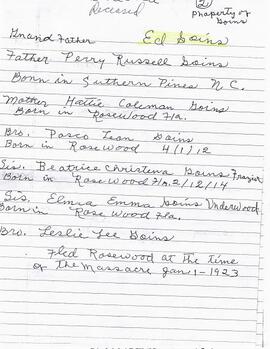 Deceased
(2)
Property of
Goins
Grand Father Ed Goins
Father Perry Russell Goins
Born in Suthern Pines N.C.
Mother Hattie Coleman Goins
Born in Rosewood Fla.
Bro. Pasco Leon Goins
Born in Rosewood 4/1/12
Sis. Beatrice Christena Goins Frazier
Born in Rosewood Fla. 2/12/14
Sis. Elmia Emma Goins Underwood
Born in Rose Wood Fla.
Bro. Leslie Lee Goins
Fled Rosewood at the time
of the Massacre Jan 1 - 1923